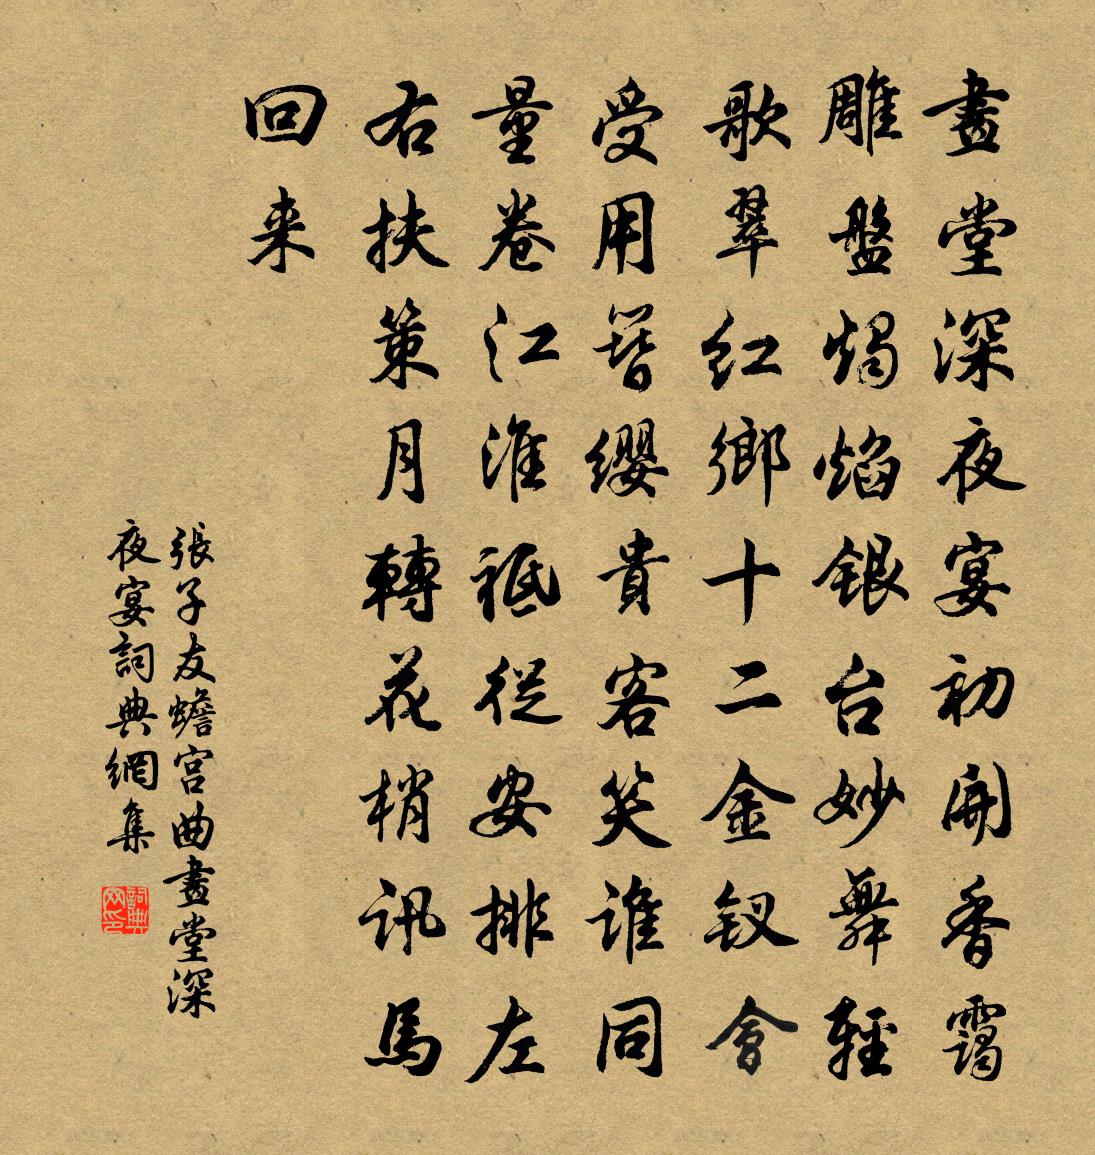 畫堂深夜宴初開香靄
雕盤燭焰銀台妙舞輕
歌翠紅鄉十二金釵會
受用簪纓貴客笑誰同
量卷江淮祗從安排左
右扶策月轉花梢訊馬
回来
張子友蟾宮曲畫堂深
夜宴詞典網集
詞典
网印